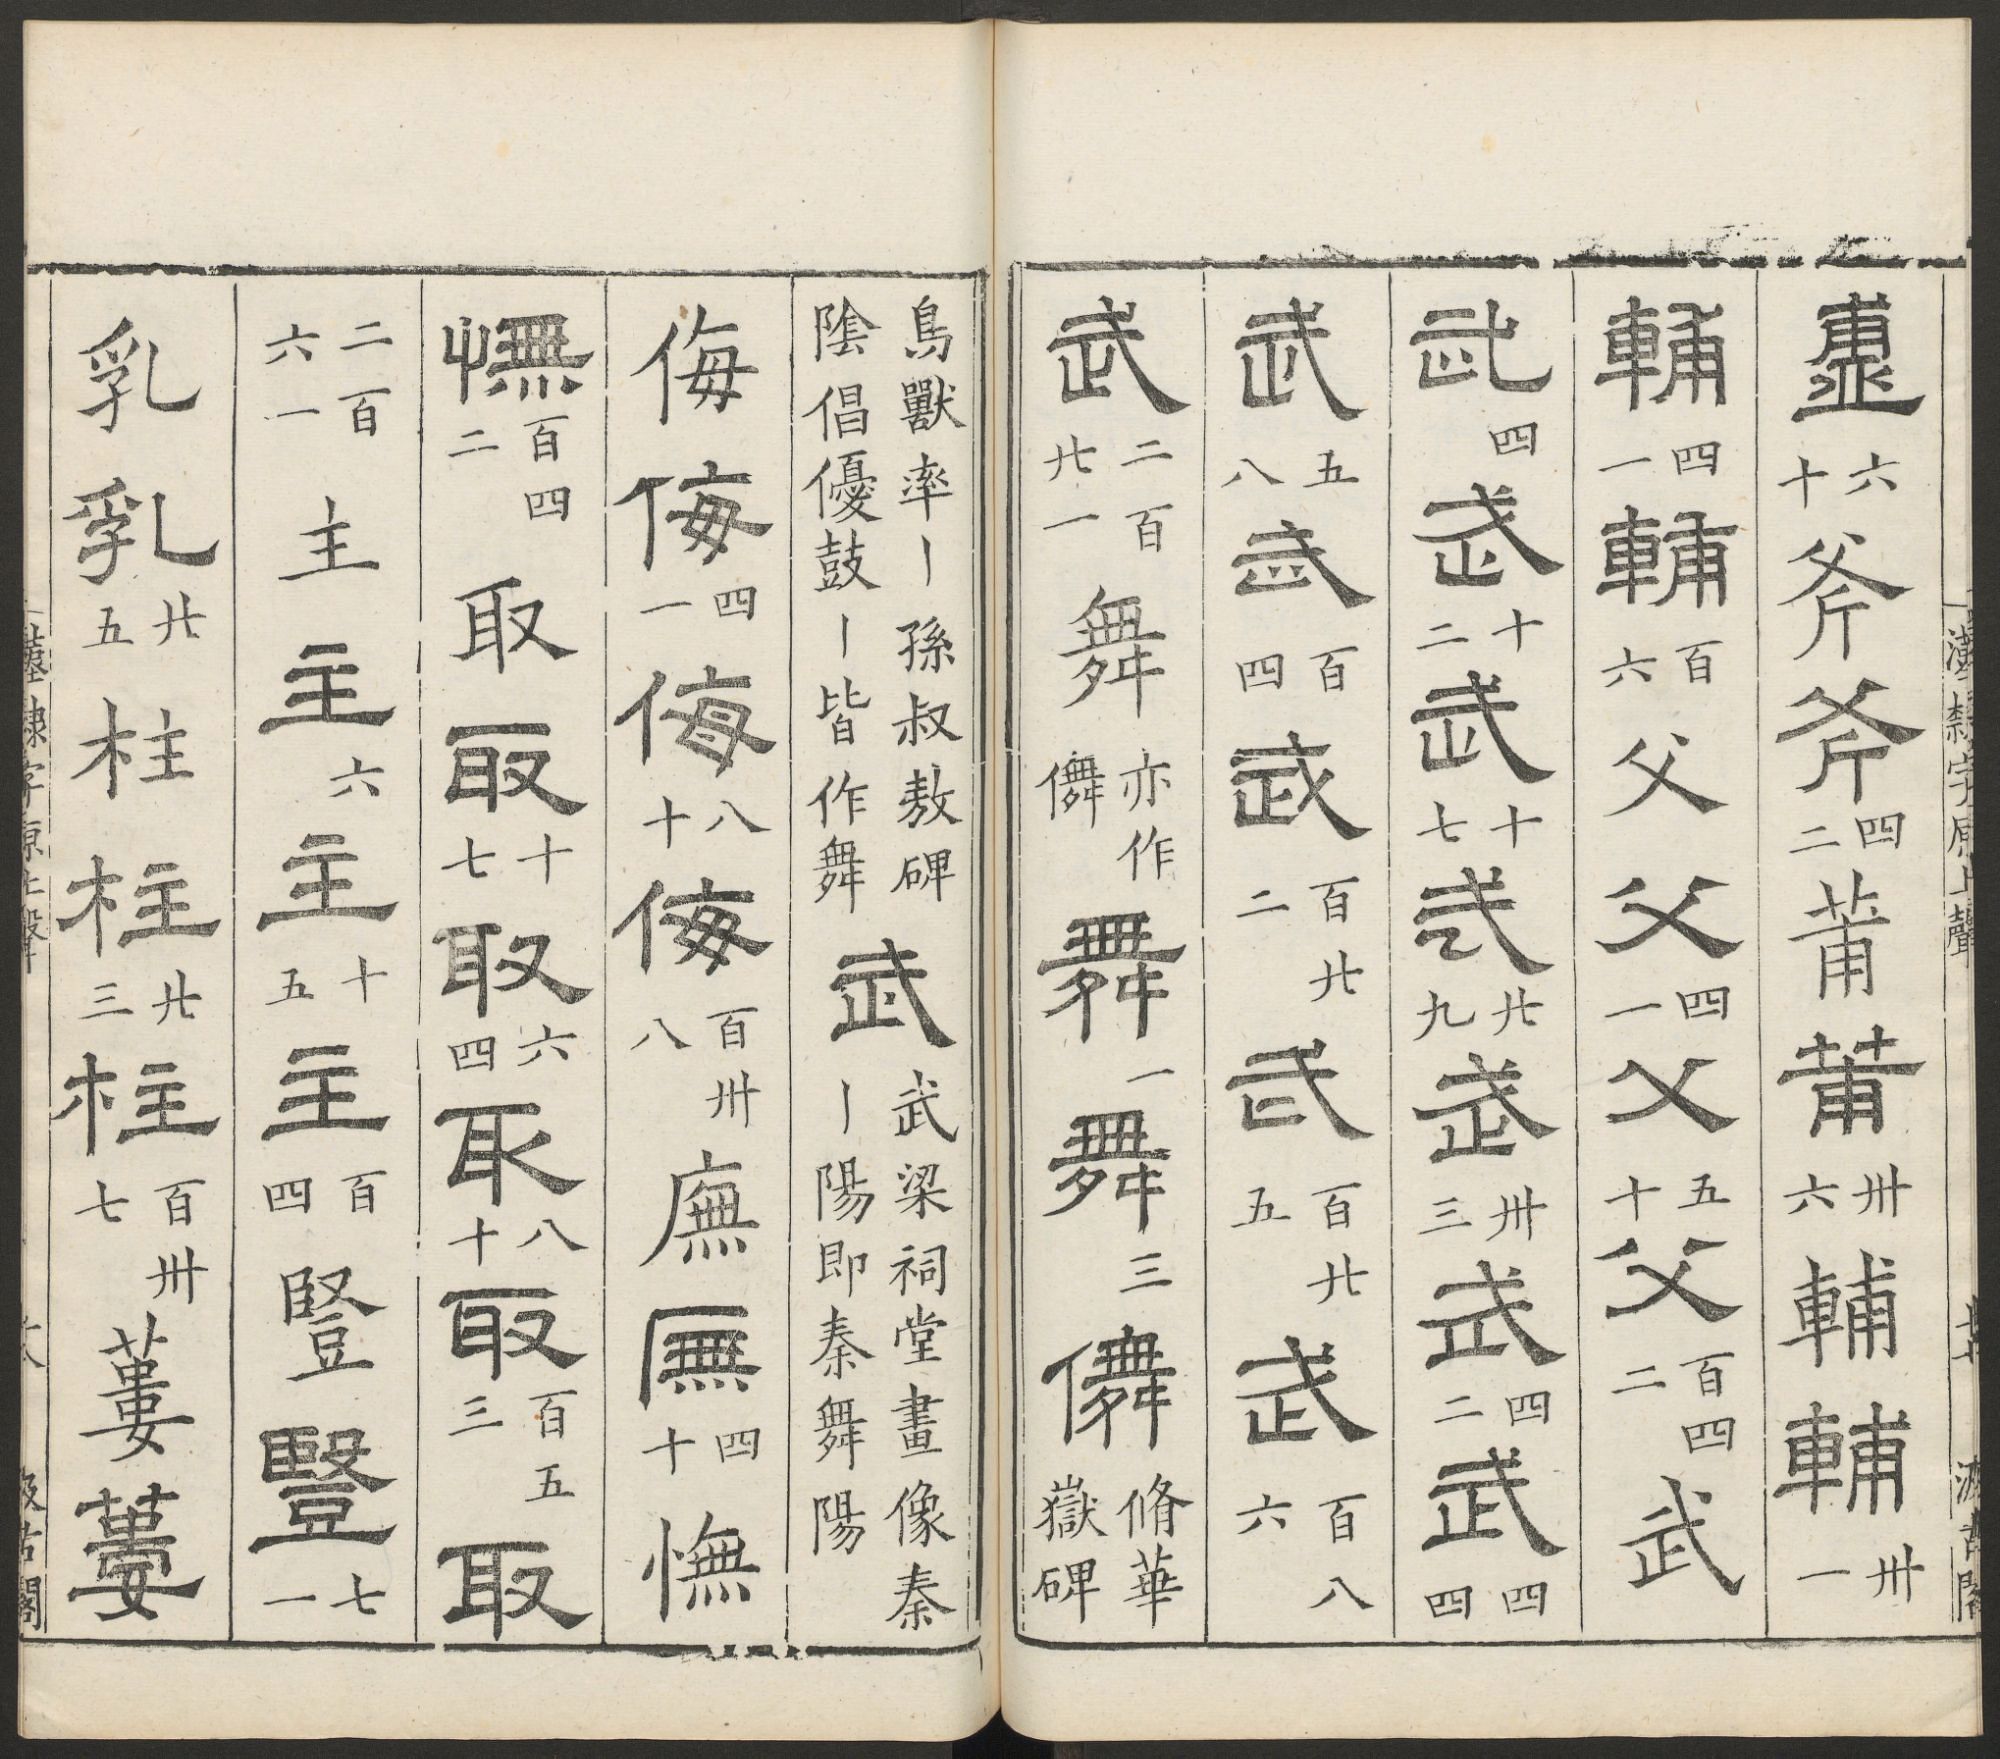 虡六十斧斧四二莆莆卅六輔輔卅一
輔四一輔百六父父四一父五十父百四二武
武四武十二武十七武廿九武卅三武四二武四四
武五八武百四武百廿二武百廿五武百八六
武二百廿一舞亦作儛舞一舞三儛脩華嶽碑
鳥獸率丨孫叔敖碑武武梁祠堂畫像秦
陰倡優鼓丨皆作舞丨陽即秦舞陽
侮侮四一侮八十侮百卅八廡廡四十憮
憮百四二取取十七取六四取八十取百五三取
二百六一主主六主十五主百四豎豎七一
乳乳廿五柱柱廿三柱百卅七蔞蔞
漢隸字原上聲
汲古閣